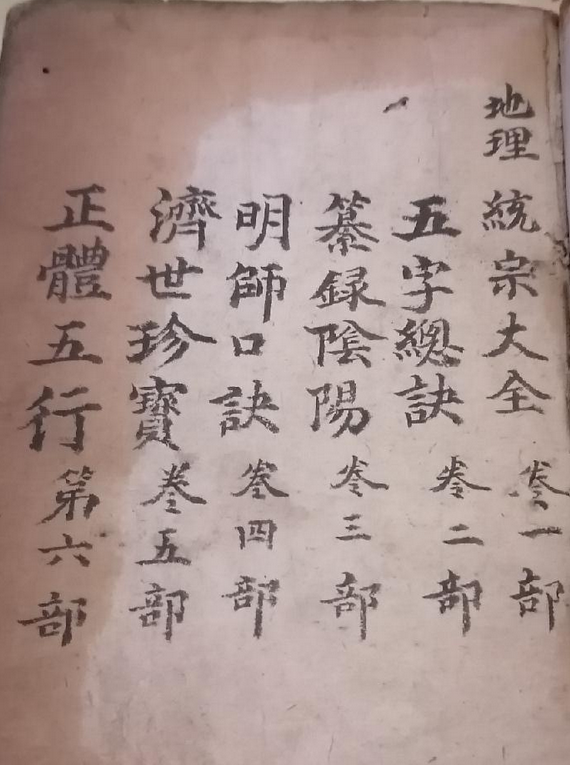 地理統宗大全卷一部
五字總訣卷二部
纂録陰陽卷三部
明師口訣卷四部
濟世珍寶卷五部
正體五行第六部